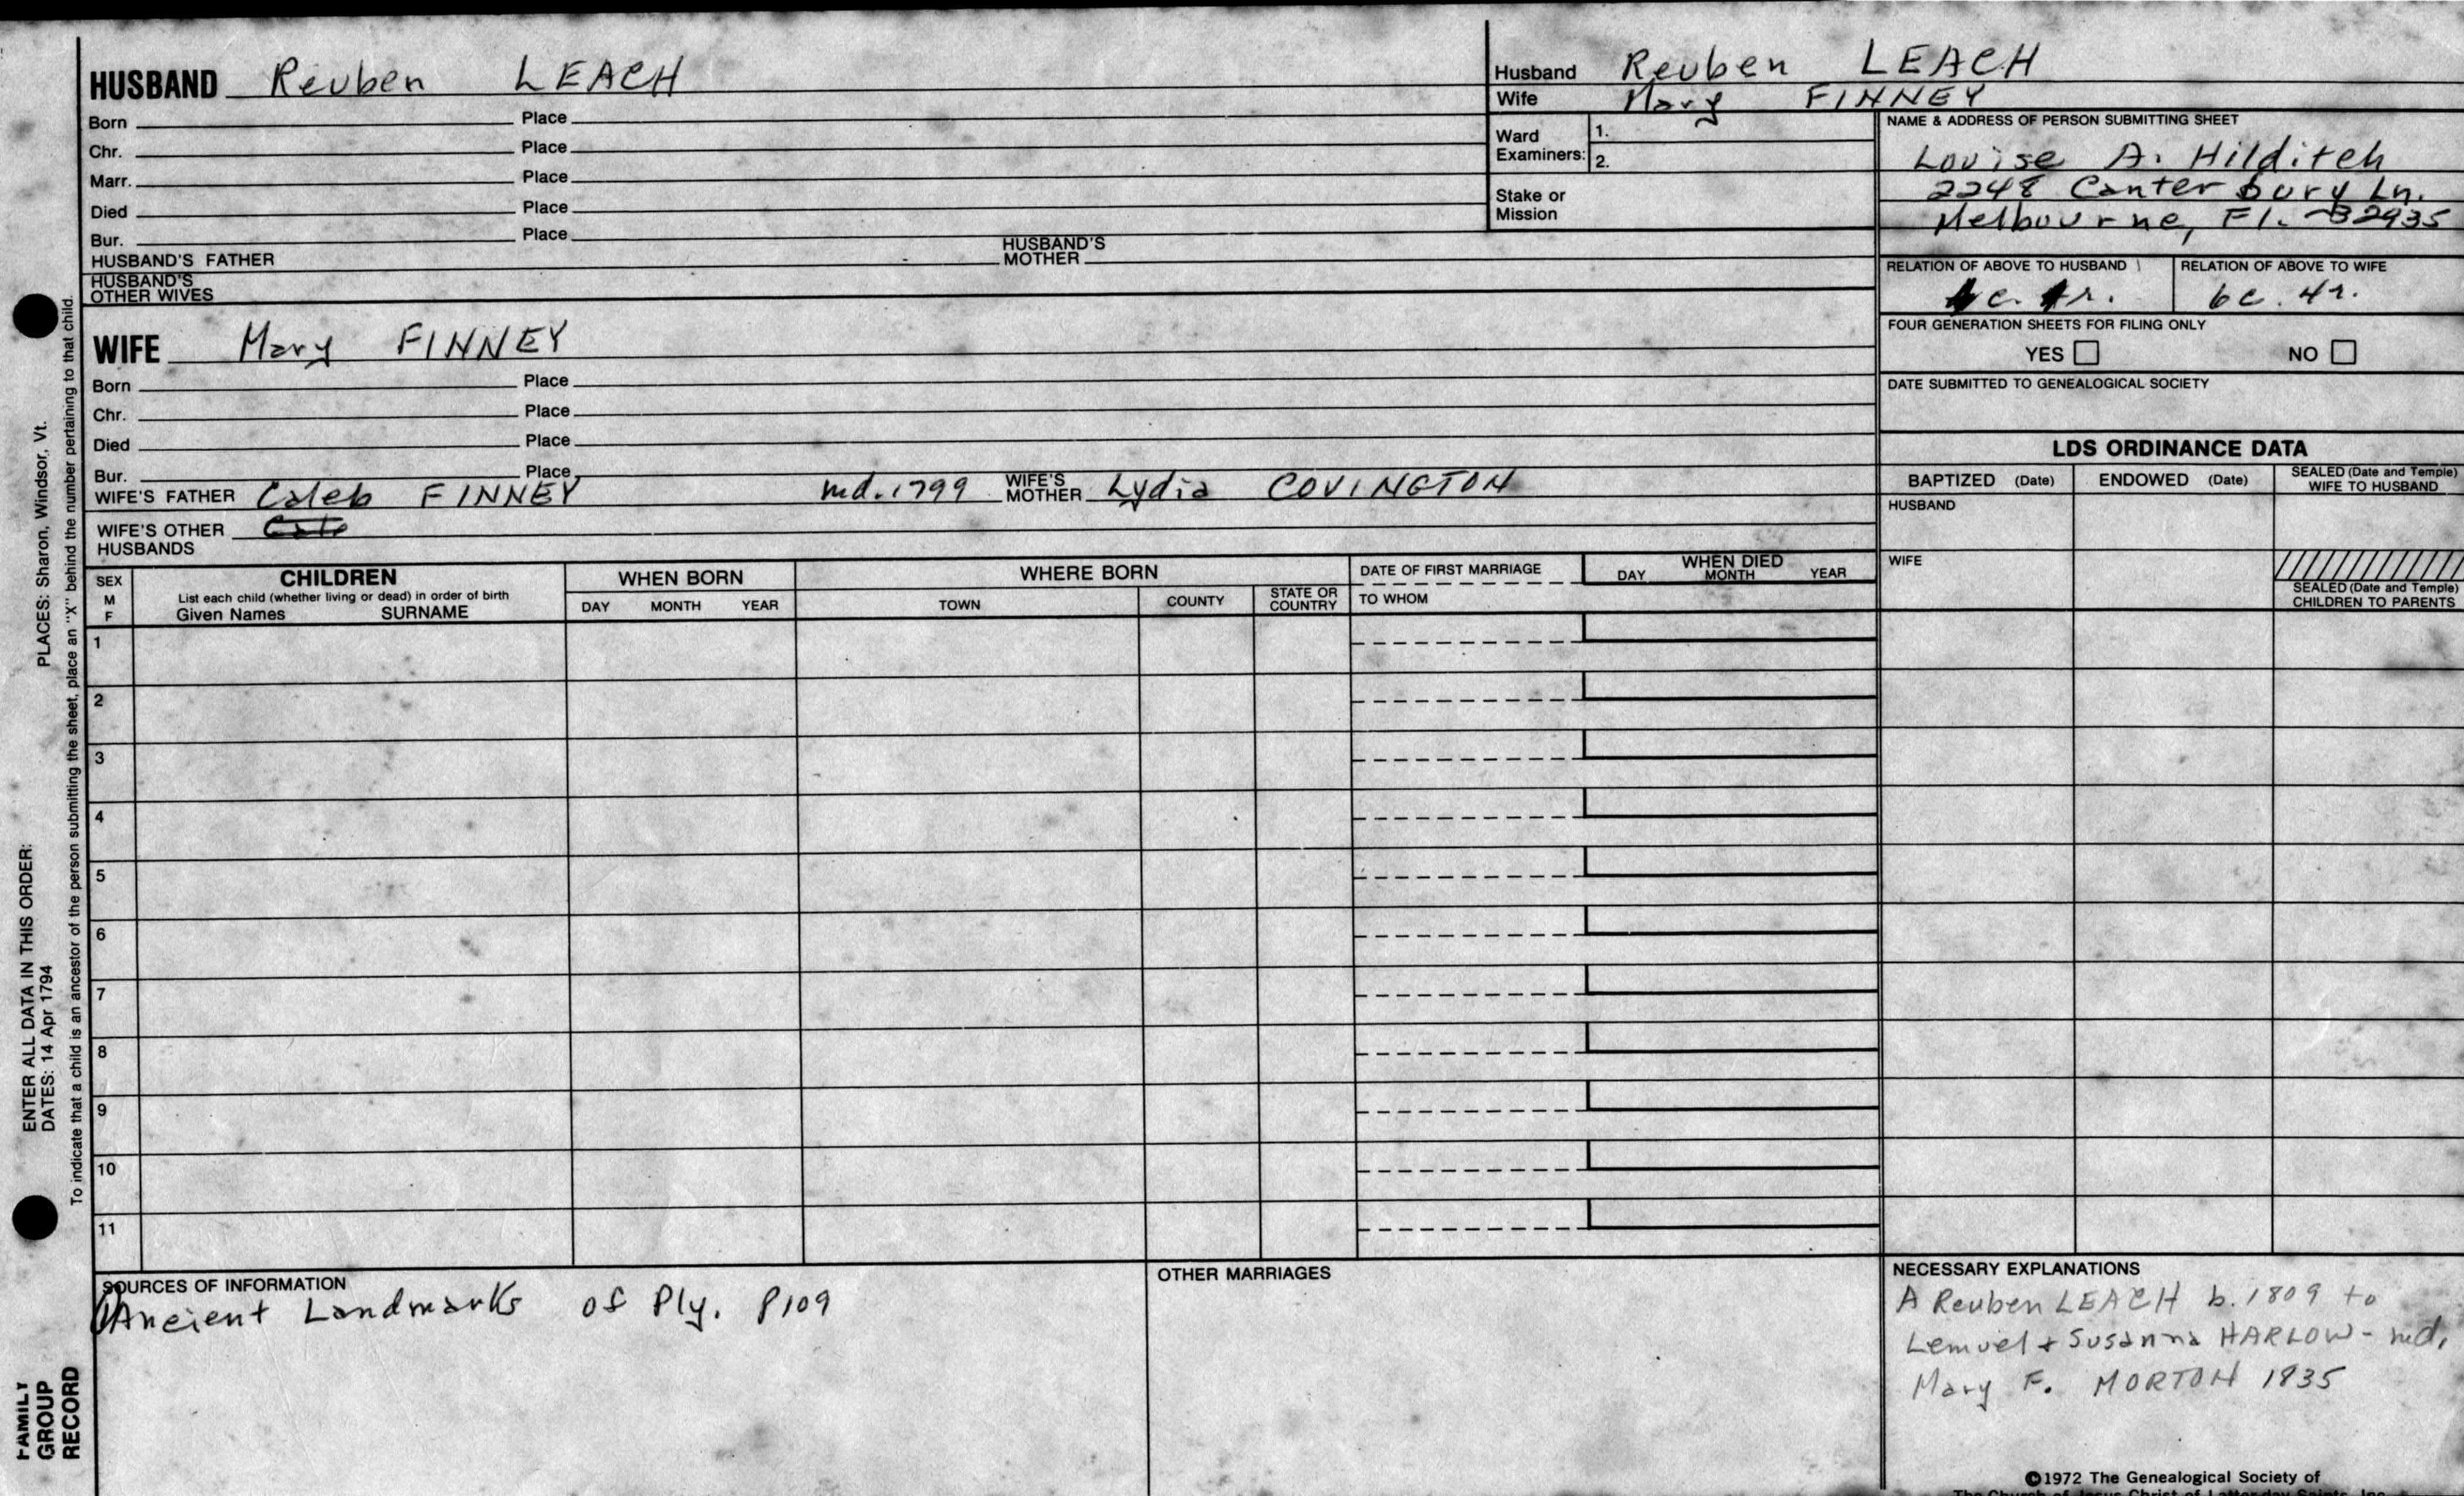 HUSBAND Reuben LEACH
Born Place
Chr. Place
Marr. Place
Died Place
Bur. Place
HUSBAND'S FATHER HUSBAND'S MOTHER
HUSBAND'S OTHER WIVES
WIFE Mary FINNEY
Born Place
Chr. Place
Died Place
Bur. Place
WIFE'S FATHER Caleb FINNEY md. 1799 WIFE'S MOTHER Lydia COVINGTON
WIFE'S OTHER HUSBANDS
Husband Reuben LEACH
Wife Mary FINNEY
Ward Examiners: 1.
2.
Stake or Mission
NAME & ADDRESS OF PERSON SUBMITTING SHEET
Louise A. Hilditch
2248 Canterbury Ln.
Melbourne, Fl. 32935
RELATION OF ABOVE TO HUSBAND RELATION OF ABOVE TO WIFE
c. r. 6c. 4r.
FOUR GENERATION SHEETS FOR FILING ONLY
YES NO
DATE SUBMITTED TO GENEALOGICAL SOCIETY
LDS ORDINANCE DATA
BAPTIZED (Date) ENDOWED (Date) SEALED (Date and Temple) WIFE TO HUSBAND
HUSBAND
WIFE
SEALED (Date and Temple)
CHILDREN TO PARENTS
SEX M F
CHILDREN
List each child (whether living or dead) in order of birth
Given Names SURNAME
WHEN BORN
DAY MONTH YEAR
WHERE BORN
TOWN COUNTY STATE OR COUNTRY
DATE OF FIRST MARRIAGE
TO WHOM
WHEN DIED
DAY MONTH YEAR
1
2
3
4
5
6
7
8
9
10
11
SOURCES OF INFORMATION
Ancient Landmarks of Ply. P109
OTHER MARRIAGES
NECESSARY EXPLANATIONS
A Reuben LEACH b. 1809 to
Lemuel + Susanna HARLOW - md.
Mary F. MORTON 1835
©1972 The Genealogical Society of
The Church of Jesus Christ of Latter-day Saints, Inc.
PLACES: Sharon, Windsor, Vt.
ENTER ALL DATA IN THIS ORDER:
DATES: 14 Apr 1794
To indicate that a child is an ancestor of the person submitting the sheet, place an "X" behind the number pertaining to that child.
FAMILY
GROUP
RECORD